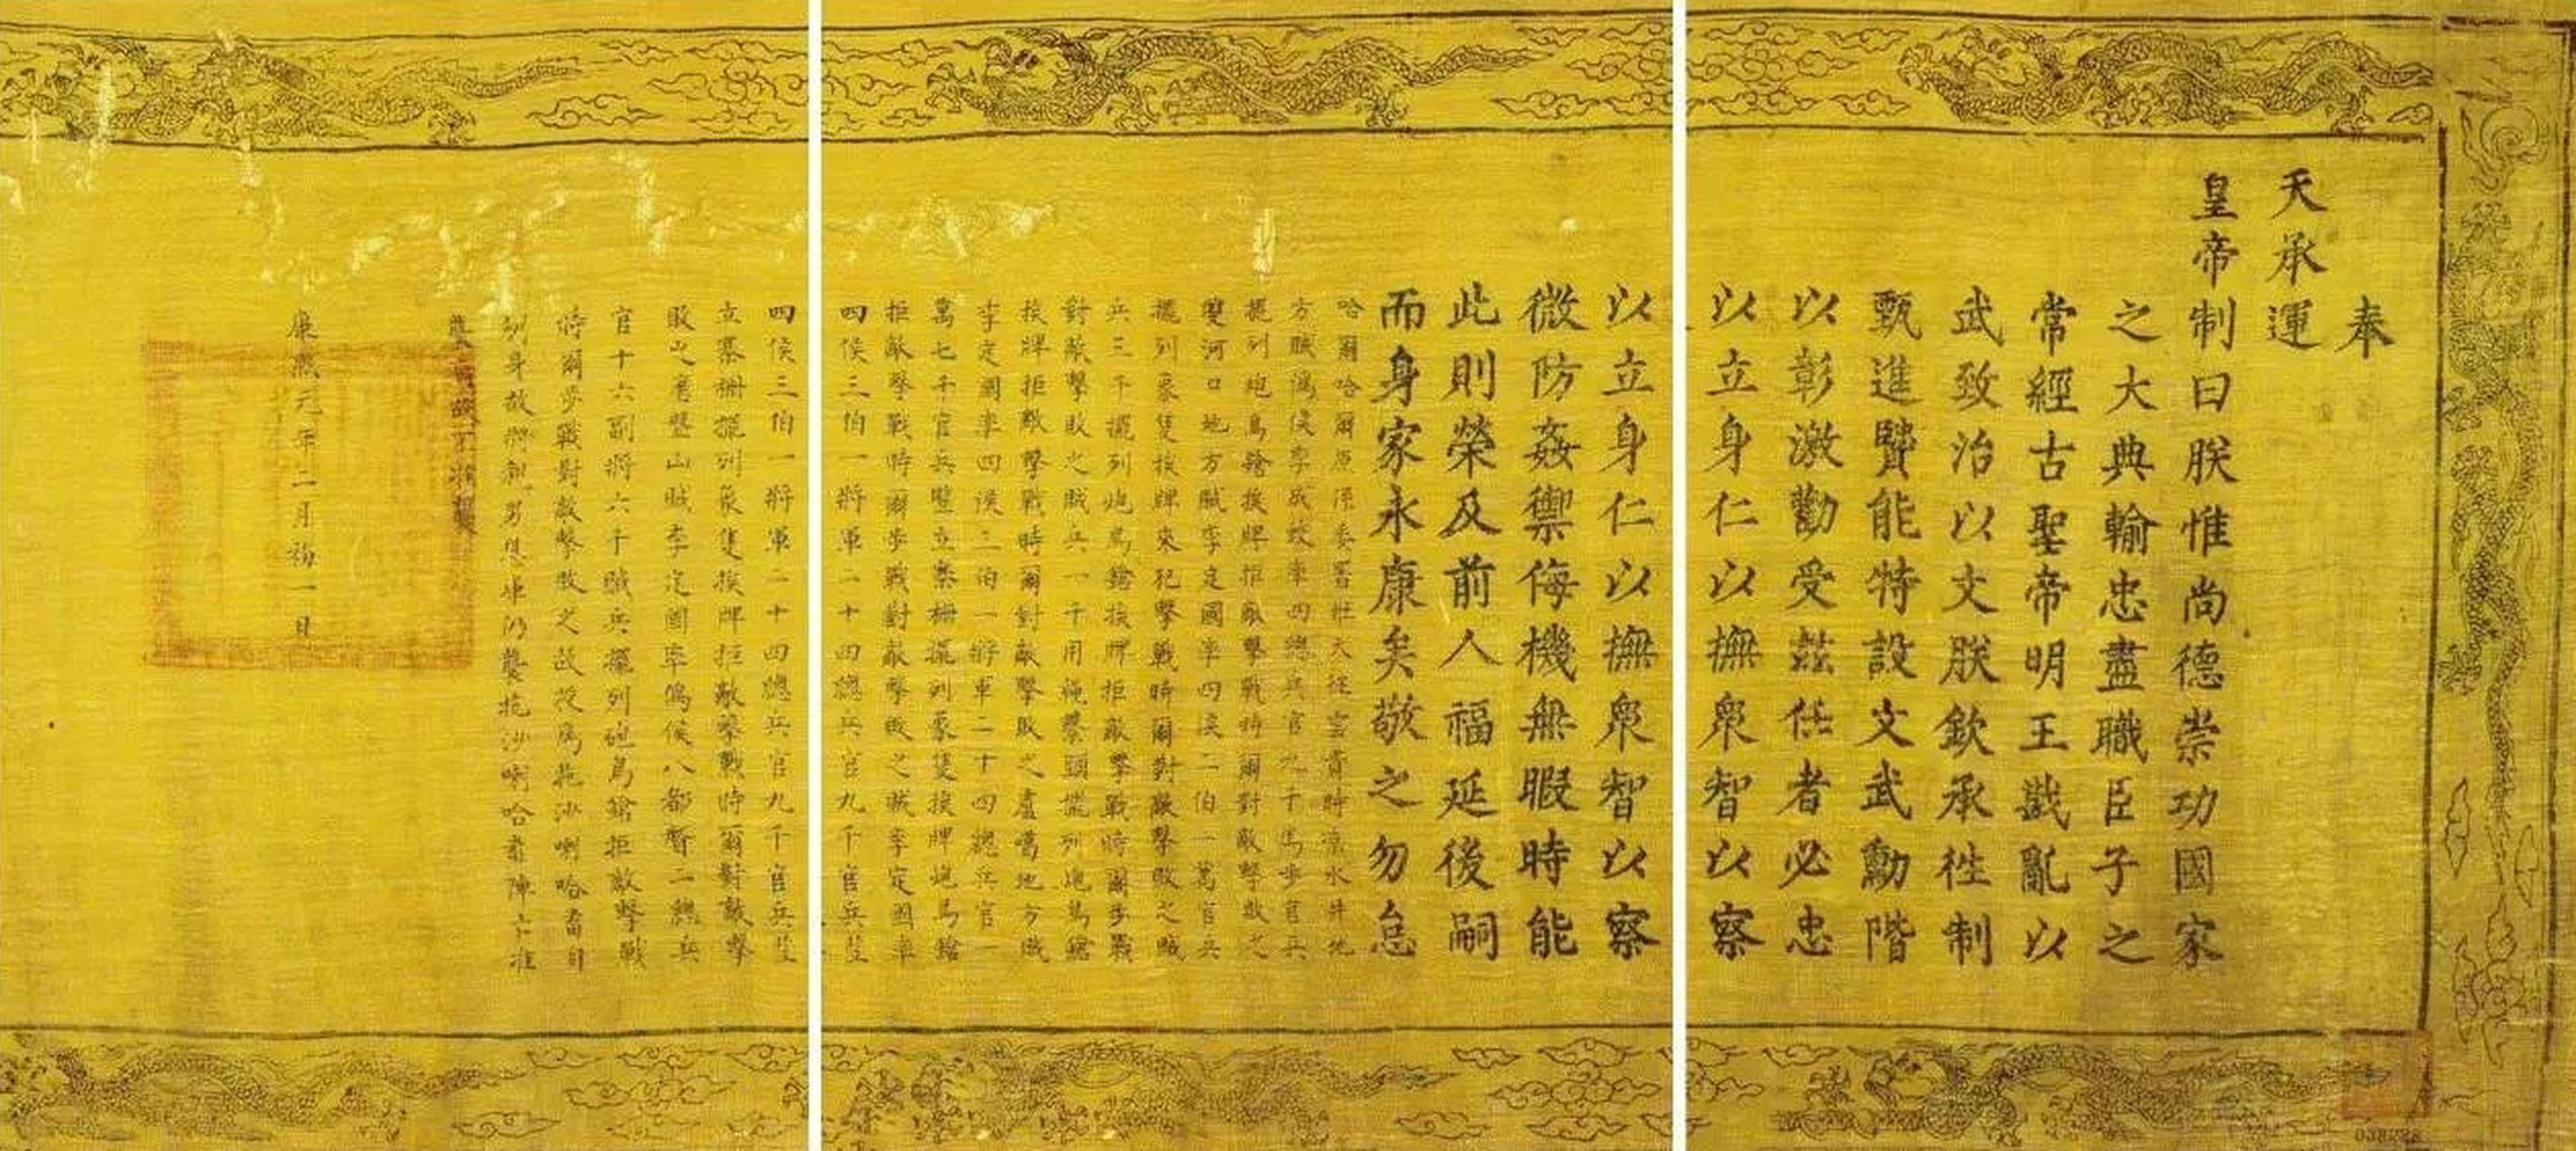 奉
天承運
皇帝制曰朕惟尚德崇功國家
之大典輸忠盡職臣子之
常經古聖帝明王戡亂以
武致治以文朕欽承往制
甄進賢能特設文武勳階
以彰激勸受茲任者必忠
以立身仁以撫衆智以察
以立身仁以撫衆智以察
微防姦禦侮機無暇時能
此則榮及前人福延後嗣
而身家永康矣敬之勿怠
哈爾哈爾原係委署壯大征雲貴時涼水井地
方賊僞侯李成蛟率四總兵官九千馬步官兵
擺列砲鳥鎗挨牌拒敵擊戰時爾對敵擊敗之
雙河口地方賊李定國率四侯二伯一萬官兵
擺列象隻挨牌來犯擊戰時爾對敵擊敗之賊
兵三千擺列砲鳥鎗挨牌拒敵擊戰時爾步戰
對敵擊敗之賊兵一千用繩攀頭擺列砲鳥鎗
挨牌拒敵擊戰時爾對敵擊敗之盧噶地方賊
李定國率四侯三伯一將軍二十四總兵官一
萬七千官兵豎立寨柵擺列象隻挨牌砲鳥鎗
拒敵擊戰時爾步戰對敵擊敗之賊李定國率
四侯三伯一將軍二十四總兵官九千官兵豎
四侯三伯一將軍二十四總兵官九千官兵豎
立寨柵擺列象隻挨牌拒敵擊戰時爾對敵擊
敗之磨盤山賊李定國率僞侯八都督二總兵
官十六副將六千賊兵擺列砲鳥鎗拒敵擊戰
時爾步戰對敵擊敗之故授爲拖沙喇哈番自
身故將親男
仍襲拖沙喇哈番陣亡准
康熙元年二月初一日